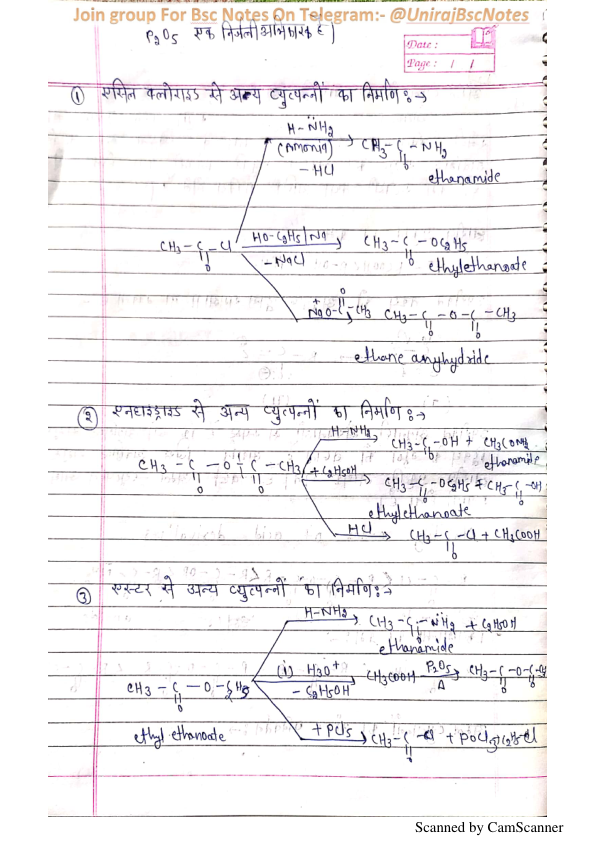 Join group For Bsc Notes On Telegram:- @UnirajBscNotes
P2O5 एक निर्जलीकारक है|
Date :
Page : / /
① एसिल क्लोराइड से अन्य व्युत्पन्नों का निर्माण :→
H-N̈H2
(Amonia)
-HCl
CH3-C-NH2
O
ethanamide
CH3-C-Cl
O
HO-C2H5/Na
-NaCl
CH3-C-OC2H5
O
ethylethanoate
O
NaO-C-CH3
+
CH3-C-O-C-CH3
O O
ethane anyhydride
② एनहाइड्राइड से अन्य व्युत्पन्नों का निर्माण :→
H-NH2
CH3-C-OH + CH3CONH2
O
ethanamide
CH3-C-O-C-CH3
O O
+C2H5OH
CH3-C-OC2H5 + CH3-C-OH
O O
ethylethanoate
HCl
CH3-C-Cl + CH3COOH
O
③ एस्टर से अन्य व्युत्पन्नों का निर्माण :→
H-NH2
CH3-C-N̈H2 + C2H5OH
O
ethanamide
CH3-C-O-C2H5
O
ethyl ethanoate
(i) H3O+
-C2H5OH
CH3COOH
P2O5
Δ
CH3-C-O-C-CH3
O O
+PCl5
CH3-C-Cl + POCl3+C2H5Cl
O
Scanned by CamScanner